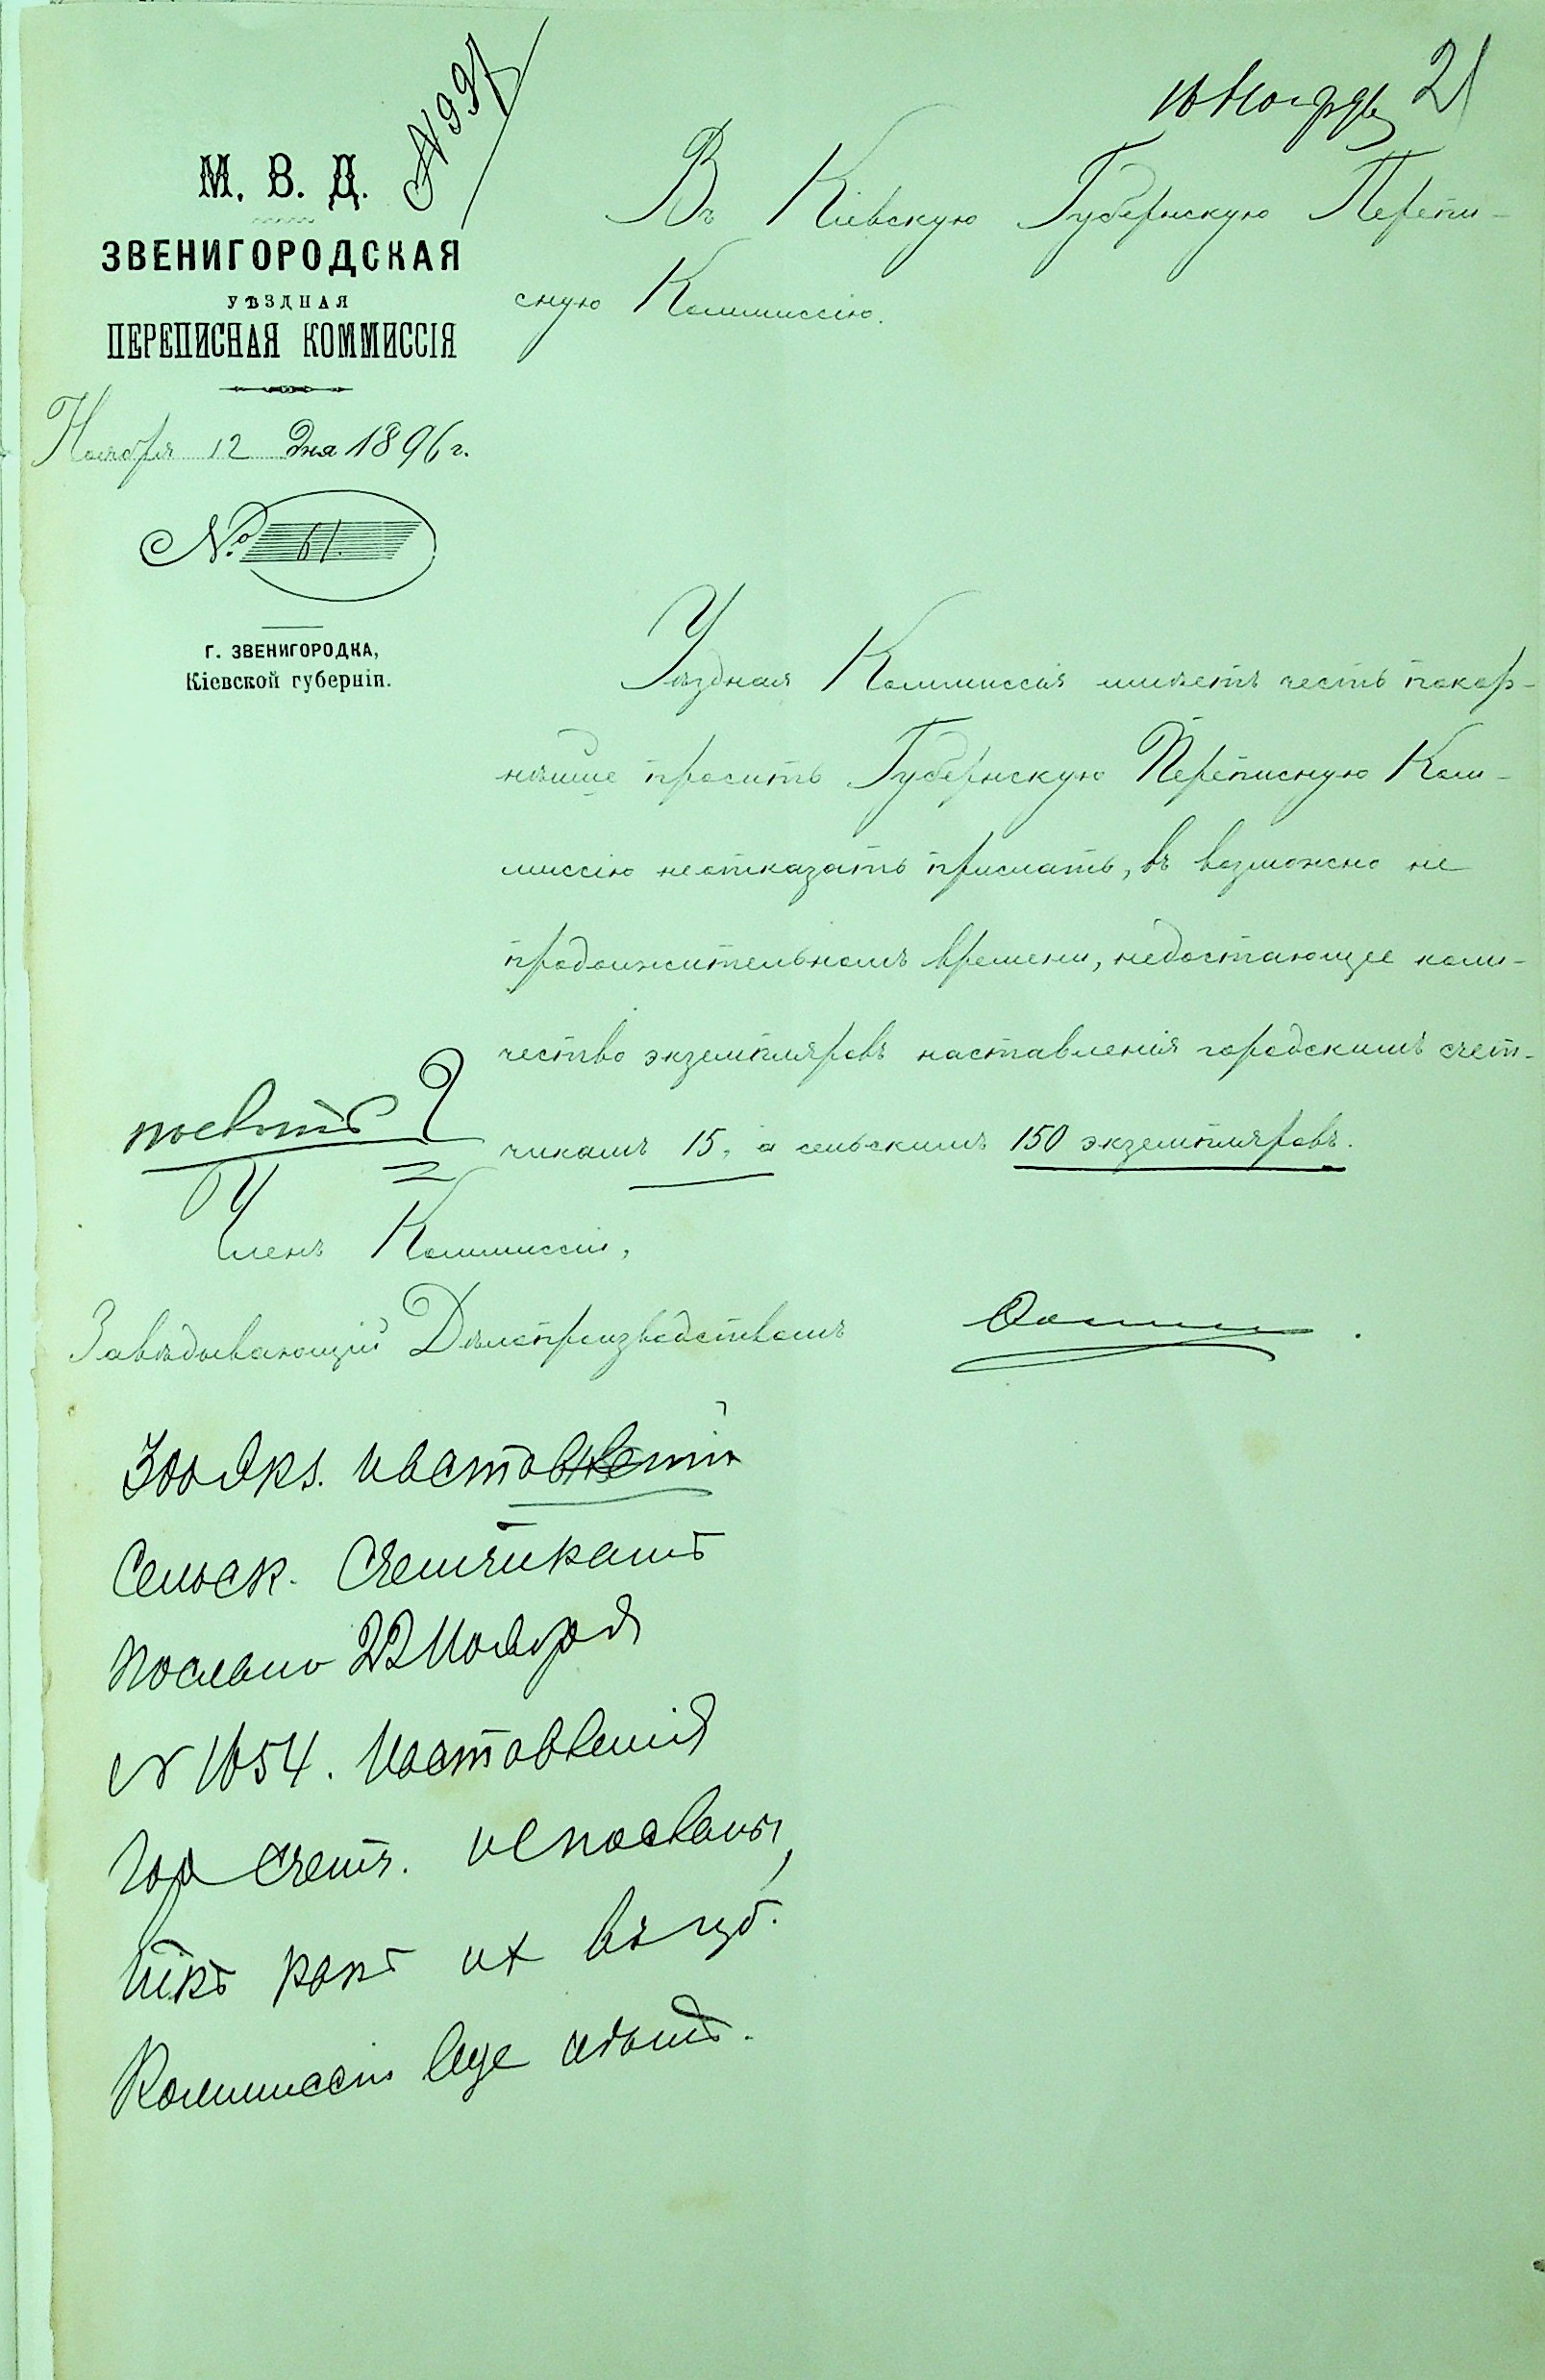 № 997
16 Ноября 21
М. В. Д.
ЗВЕНИГОРОДСКАЯ
УѢЗДНАЯ
ПЕРЕПИСНАЯ КОММИССІЯ
Ноября 12 дня 1896 г.
№ 61.
Г. ЗВЕНИГОРОДКА,
Кіевской губерніи.
Въ Кіевскую Губернскую Перепи-
сную Коммиссію.
Уѣздная Коммиссія имѣетъ честь покор-
нѣйше просить Губернскую Переписную Ком-
миссію неотказать прислать, въ возможно не
продолжительномъ времени, недостающее коли-
чество экземпляровъ наставленія городскимъ счет-
чикамъ 15, а сельскимъ 150 экземпляровъ.
Членъ Коммиссіи,
Завѣдывающій Дѣлопроизводствомъ
300 экз. наставленій
Сельск. Счетчикамъ
послано 22 Ноября
№ 1054. Наставленія
Гор Счетч. не посланы,
такъ какъ их въ губ.
Коммиссіи еще нѣтъ.